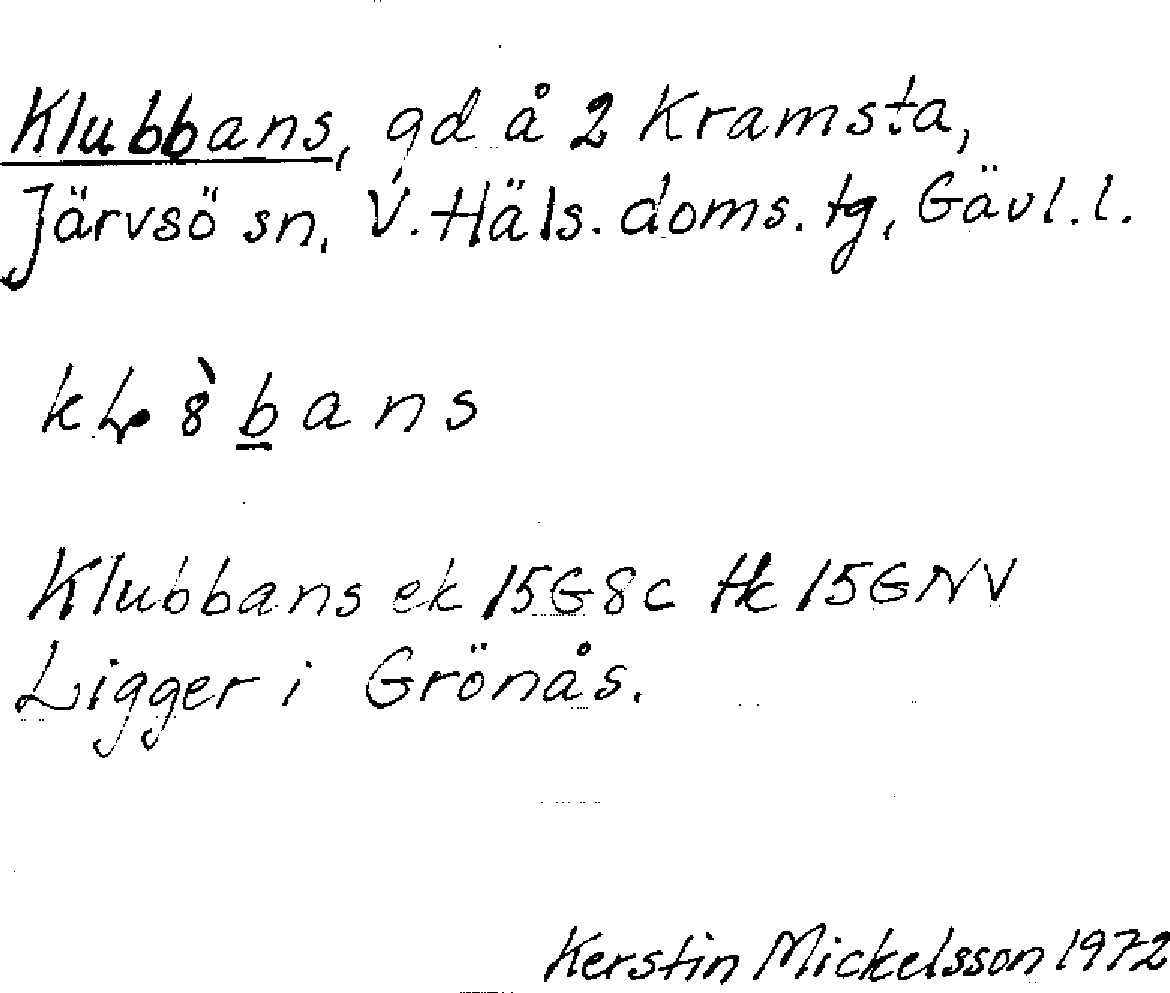 Klubbans, gd å 2 Kramsta,
Järvsö sn, V. Häls. doms. tg, Gävl. l.
Klubbans ek 15G8c tk 15GNV
Ligger i Grönås.
Kerstin Mickelsson 1972